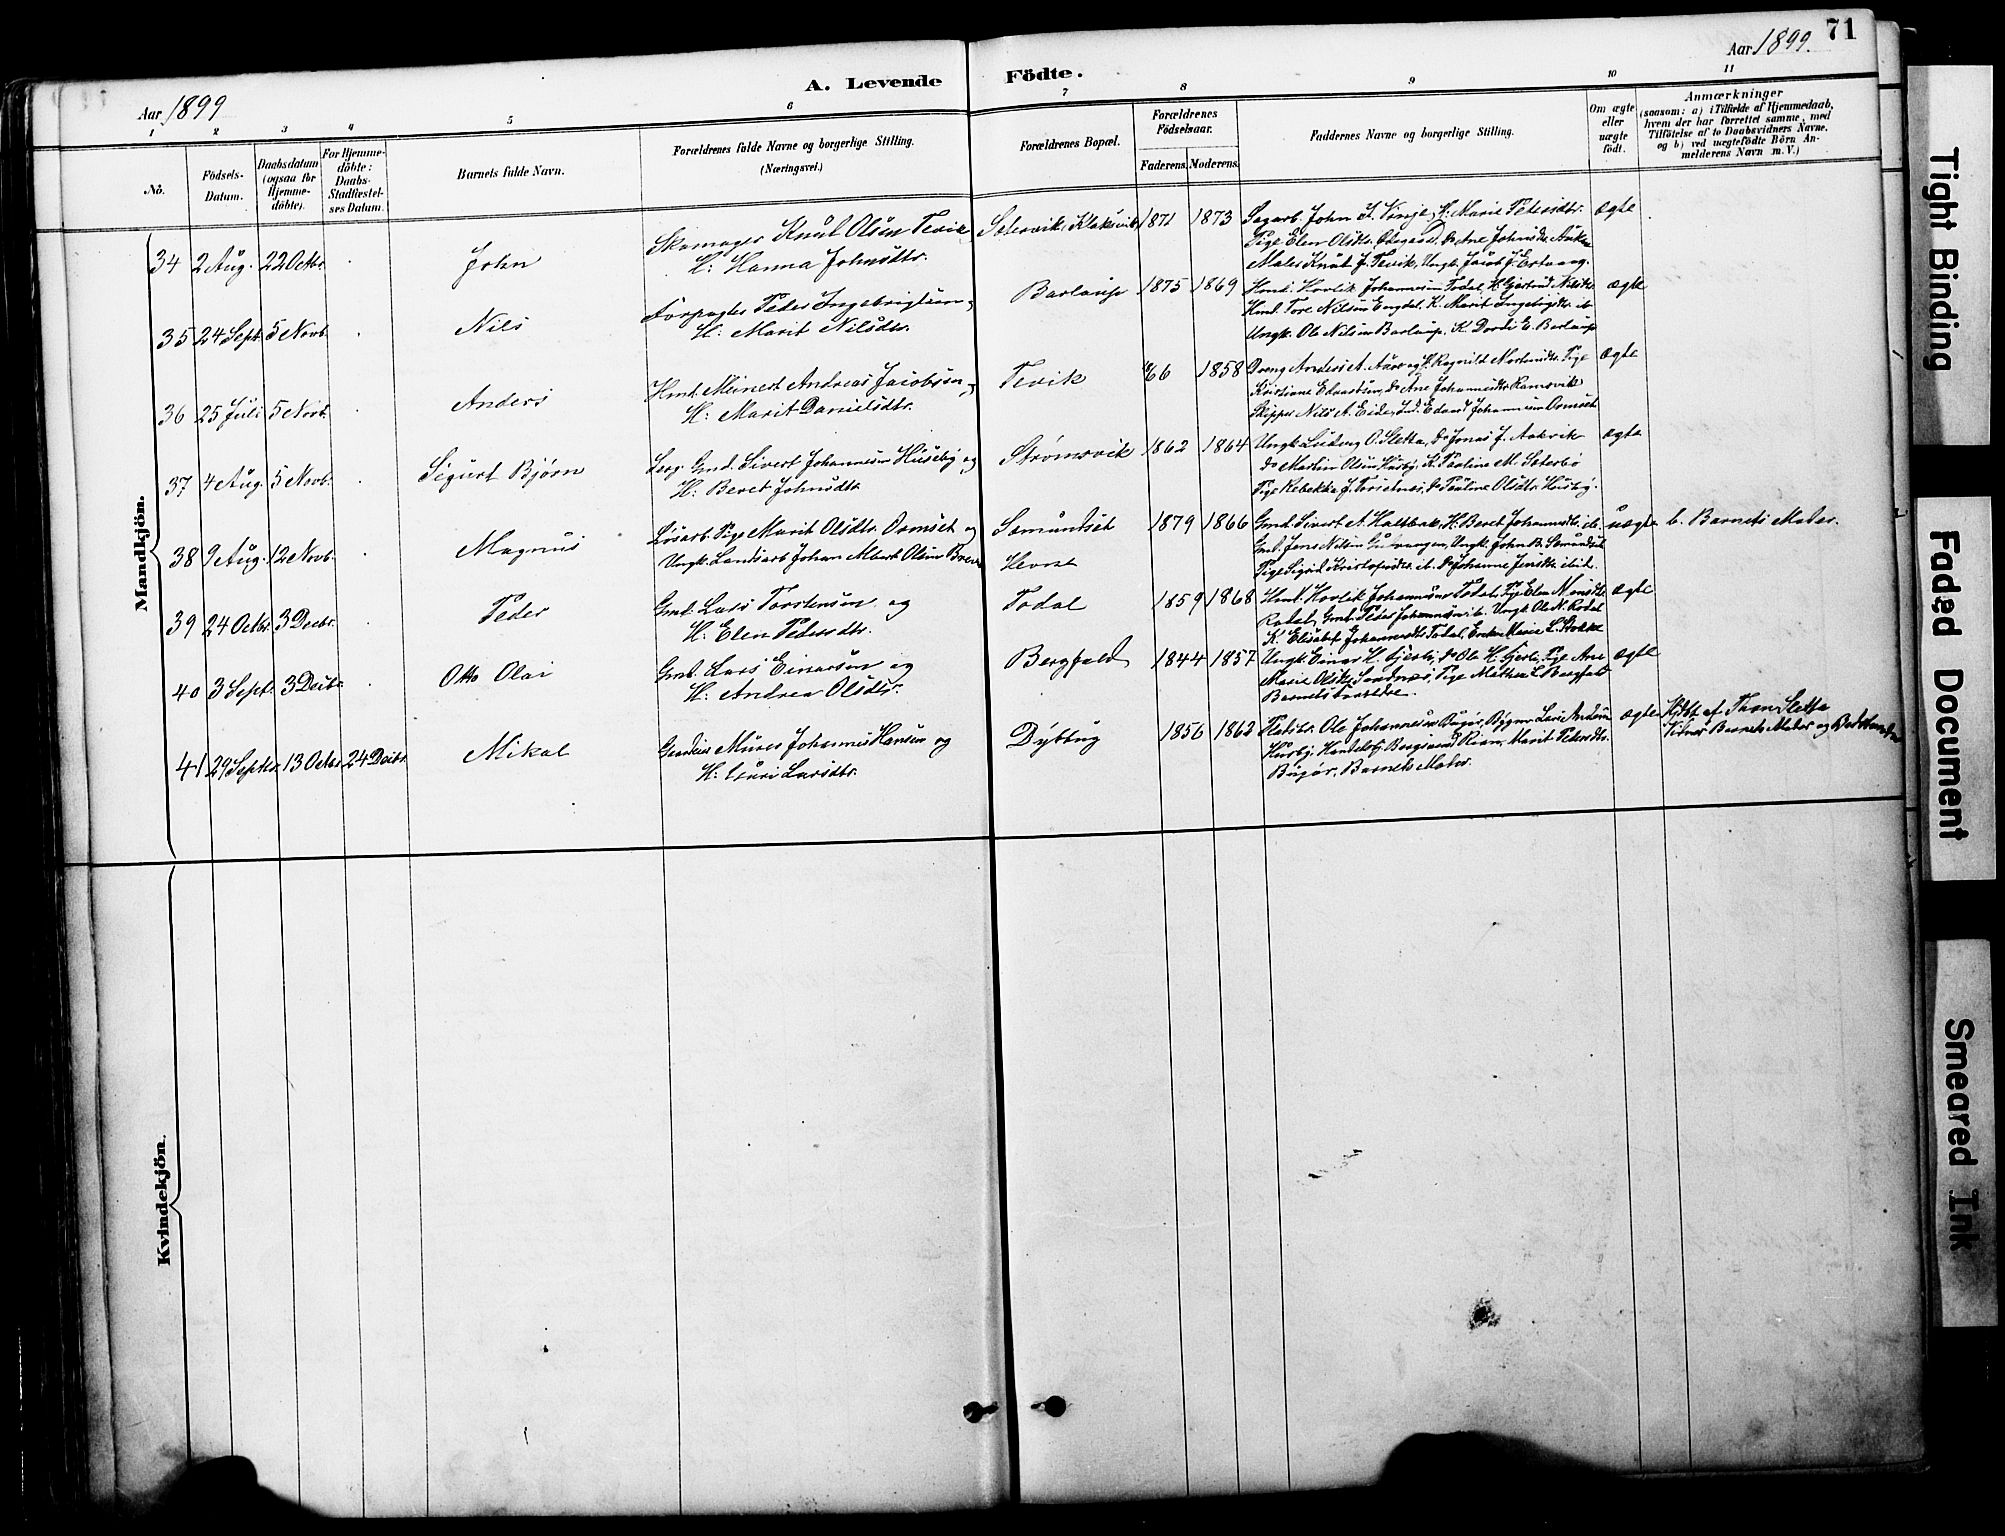 71
Aar 1899
A. Levende Födte.
Aar 1899.
1 2 3 4 5 6 7 8 9 10 11
No.
Födsels-
Datum.
Daabsdatum
(ogsaa for
Hjemme-
döbte).
For Hjemme-
döbte:
Daabs-
Stadfæstel-
ses Datum.
Barnets fulde Navn.
Forældrenes fulde Navne og borgerlige Stilling.
(Næringsvei.)
Forældrenes Bopæl.
Forældrenes
Födselsaar.
Faderens. Moderens.
Faddernes Navne og borgerlige Stilling.
Om ægte
eller
uægte
födt.
Anmærkninger
(saasom: a) i Tilfælde af Hjemmedaab,
hvem der har forrettet samme, med
Tilföielse af to Daabsvidners Navne,
og b) ved uægtefödte Börn An-
melderens Navn m. V.)
Mandkjön.
34 2 Aug. 22 Octbr. John
Skomager Knut Olsen Tevik
H: Hanna Johnsdtr.
Setervik, Klaksvik 1871 1873
Sagarb. John I. Vinje, H. Marie Petersdtr.
Pige Elen Olsdtr. Ødegaard, Do Ane Johnsdtr.
Maler Knut J. Tevik, Ungk. Jacob J.
ægte
35 24 Sept. 5 Novb. Nils
Forpagter Peder Ingebrigtsen
H: Marit Nilsdtr.
Barlaup 1875 1869
Johannessen Todal, H. Gjertrud Nilsdtr
Tore Nilssen Engdal, K. Marit
Ungk. Ole Nilssen Barlaup, K. Dordi E. Barlaup
ægte
36 25 Juli 5 Novb. Anders
Hmd. Meinert Andreas Jacobsen
H: Marit Danielsdtr.
Tevik 66 1858
Dreng Anders A. og H. Ragnild
Kristiane Edvardsen, Do Ane Johannesdtr. Ramsvik
Skipper Nils A. Eide, Ind. Edvard Johannessen Ormset
ægte
37 4 Aug. 5 Novb. Sigurt Bjørn
Gmd. Sivert Johannessen Huseby og
H: Beret Johnsdtr.
Strømsvik 1862 1864
Ungk. Ludvig O. Sletta, Do Jonas J. Aakvik
Do Martin Olsen Husby, K. Pauline M. Seterbø
Pige Rebekka J. Torsetnes, Do Pauline Olsdtr. Husby.
ægte
38 9 Aug. 12 Novb. Magnus
Løsarb. Pige Marit Olsdtr. Ormset og
Ungk. Landarb Johan Albert Olsen
Somundset
Hevne
1879 1866
Gmd. Sivert A. H. Beret Johannesdtr. ib.
Gmd. Jens Nilsen Ungk. John B. Somundset
Pige Sigrid Kristofersdtr. ib. Do Johanne Jensdtr. ibid.
uægte b. Barnets Moder.
39 24 Octbr. 3 Decbr. Peder
Gmd. Lars Torstensen og
H: Elen Pedersdtr.
Todal 1859 1868
Johannessen Todal, Elen
Rodal, Gmd. Peder Johannessen ib. Ungk. Ole N. Rodal
K. Elisabet Johannesdtr. Todal, Enke Marie L. Stokke
ægte
40 3 Sept. 3 Decbr. Otto Olai
Gmd. Lars Einarsen og
H: Andrea Olsdtr.
Bergfald 1844 1857
Ungk. Einar H. Gjerli, Do Ole H. Gjerli, Pige Ane
Marie Olsdtr. Sandnes, Pige Mathea L. Bergfald
Barnets Forældre.
ægte
41 29 Septbr. 13 Octbr. 24 Decbr. Mikal
Murer Johannes Hansen og
H: Guri Larsdtr.
Dybtug 1856 1862
Ole Johannessen Bugør, Lars
Husby, Rian, Marit Pedersdtr.
Bugør, Barnets Moder.
ægte
Hjdbt. af Sletta
Vidner Barnets Moder og
Kvindekjön.
Tight Binding
Faded Document
Smeared Ink